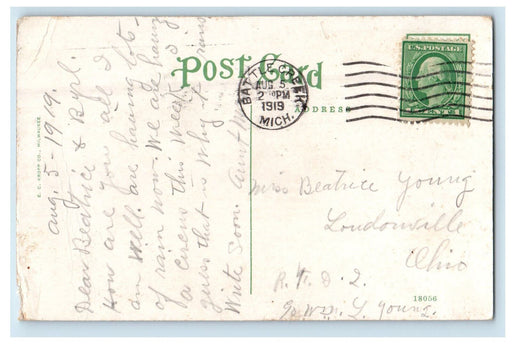 Post Card
BATTLE CREEK
AUG 5
2 PM
1919
MICH.
U.S. POSTAGE
ADDRESS
E. C. KROPP CO., MILWAUKEE
Aug. 5 - 1919.
Dear Beatrice &
How are you all I
am well are having lots
of rain now. We are having
a circus this week I
guess that is why it rains
Write soon. Aunt
Miss Beatrice Young
Loudonville
Ohio
R. F. D. 2.
Wm. L. Young.
18056